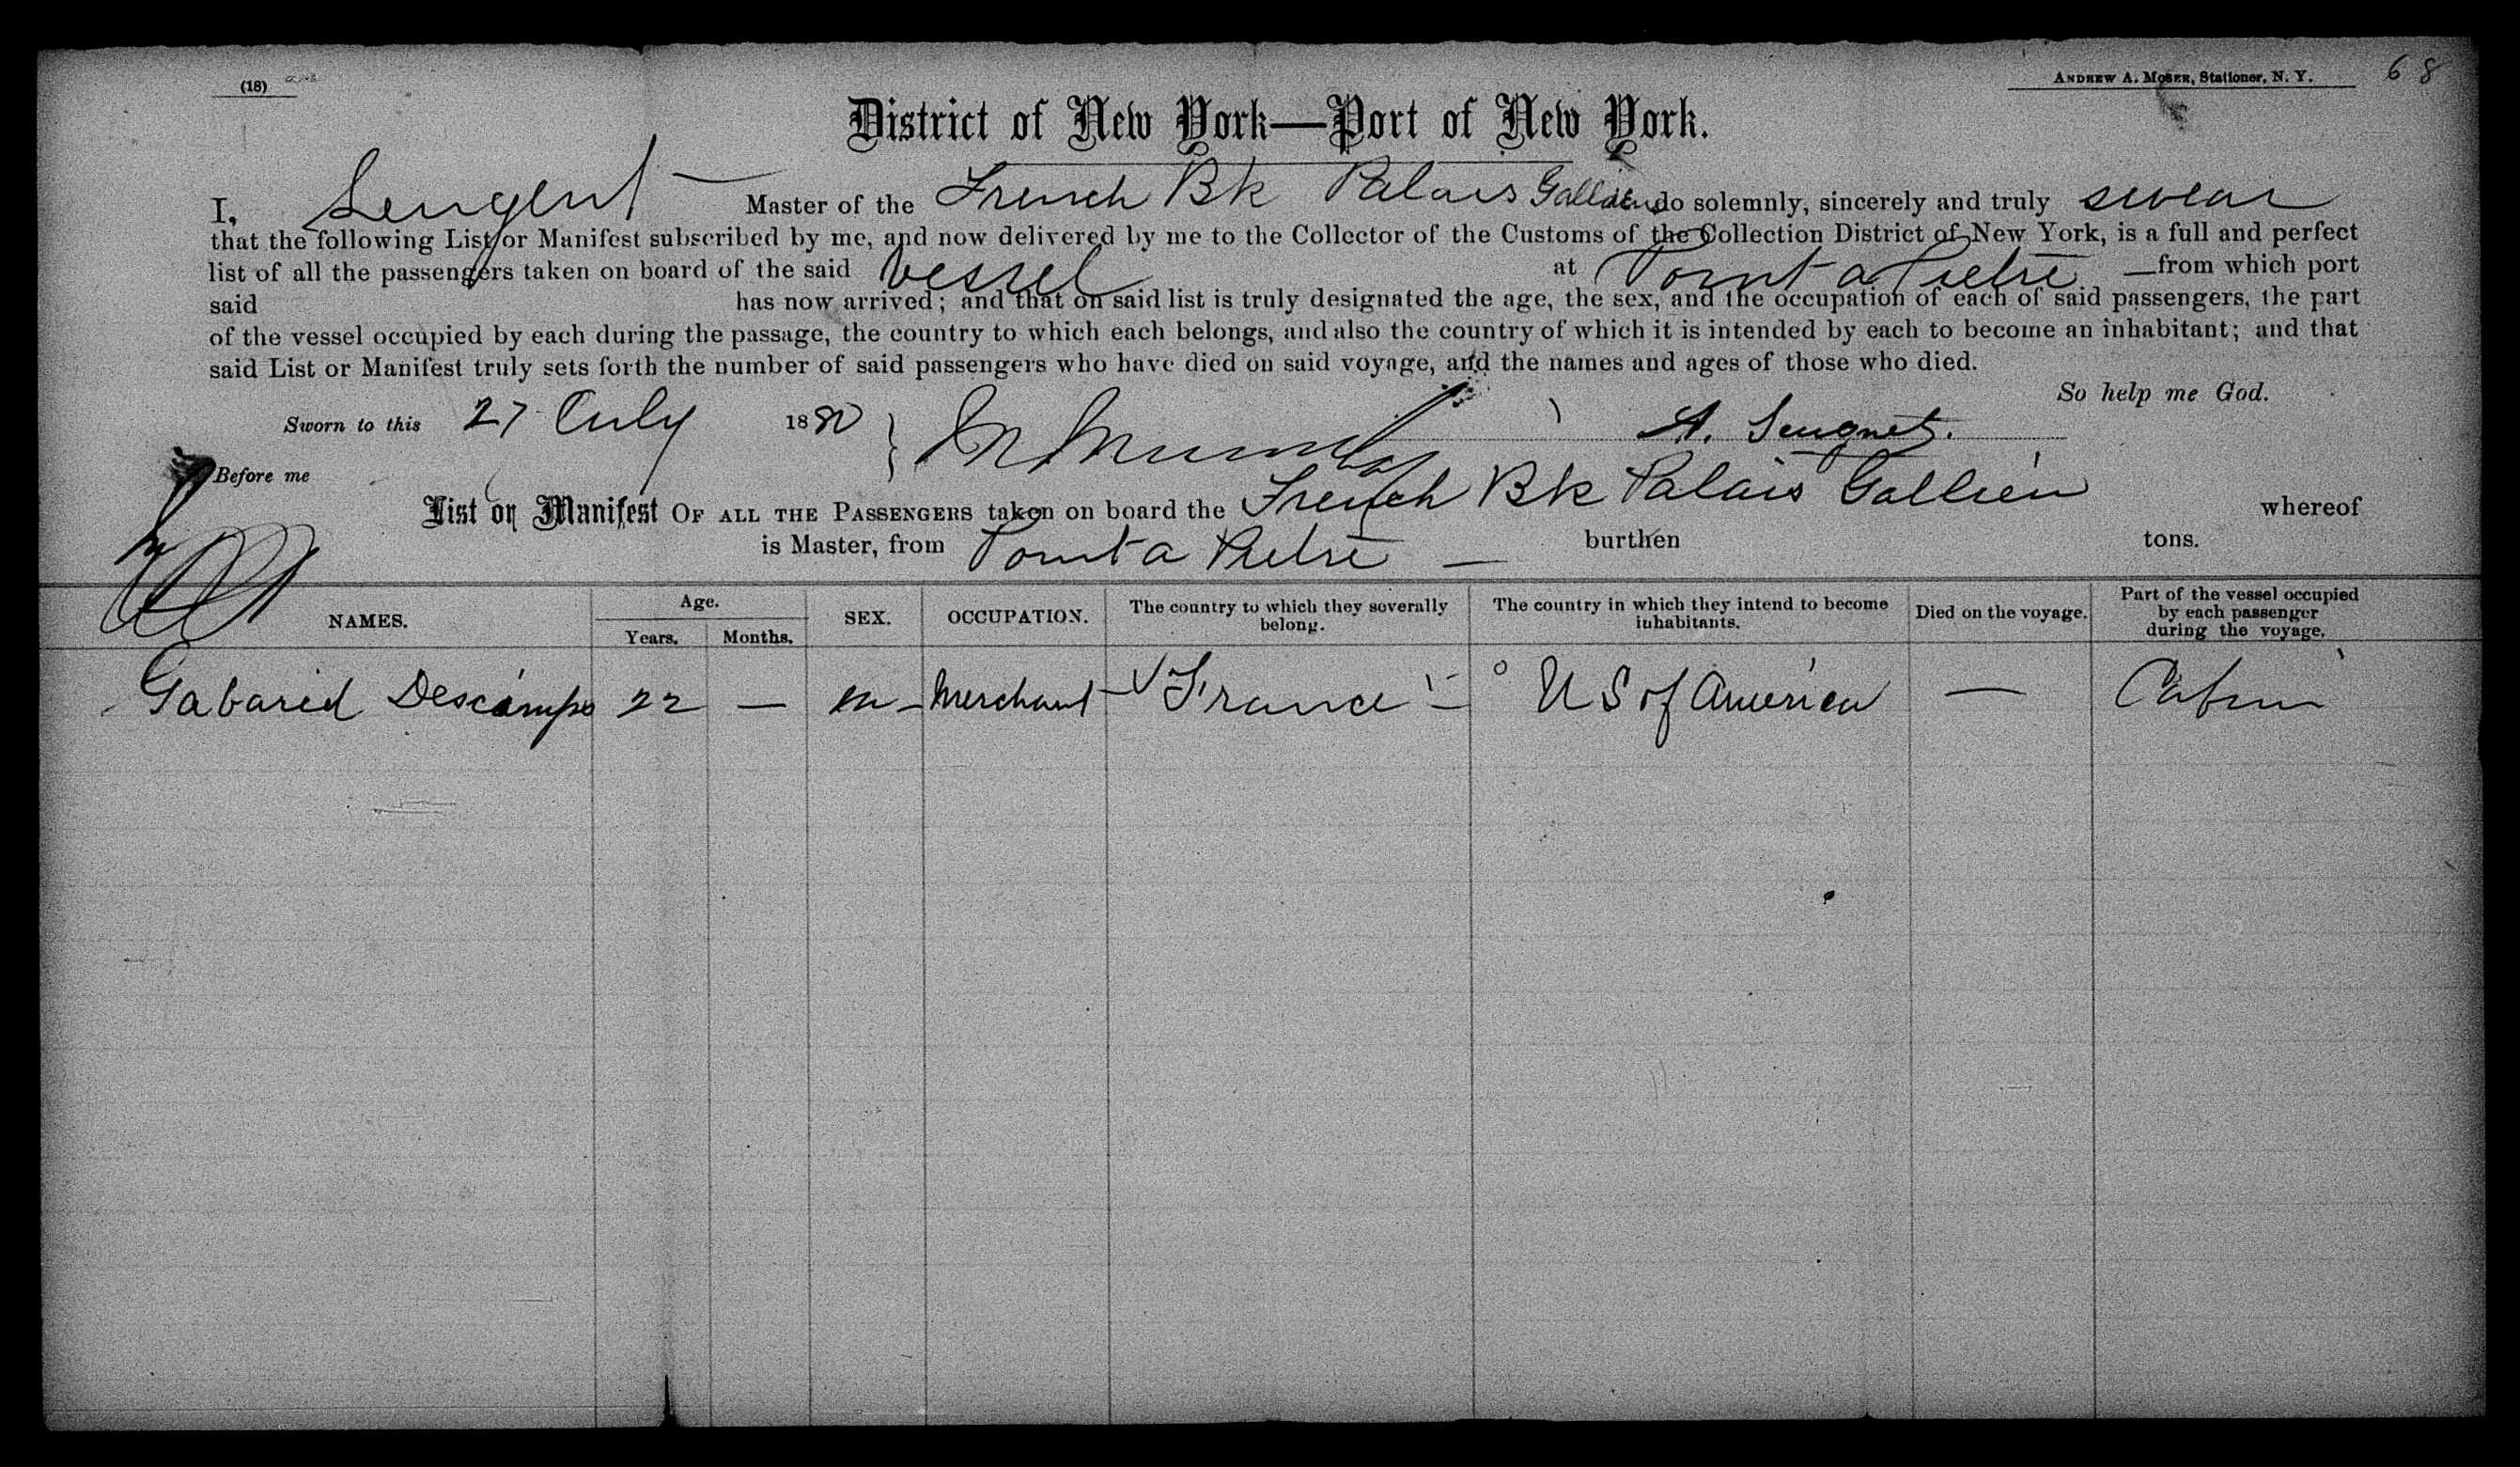 (18)
ANDREW A. MOSER, Stationer, N. Y.
68
District of New York—Port of New York.
I, Sengent — Master of the French Bk Palais Gallien do solemnly, sincerely and truly swear
that the following List or Manifest subscribed by me, and now delivered by me to the Collector of the Customs of the Collection District of New York, is a full and perfect
list of all the passengers taken on board of the said Vessel at Point a Pietre —from which port
said has now arrived; and that on said list is truly designated the age, the sex, and the occupation of each of said passengers, the part
of the vessel occupied by each during the passage, the country to which each belongs, and also the country of which it is intended by each to become an inhabitant; and that
said List or Manifest truly sets forth the number of said passengers who have died on said voyage, and the names and ages of those who died.
So help me God.
Sworn to this 27 July 1880 A. Seugnet.
Before me
List or Manifest OF ALL THE PASSENGERS taken on board the French Bk Palais Gallien whereof
is Master, from Point a Pietre — burthen tons.
NAMES. Age. Years. Months. SEX. OCCUPATION. The country to which they severally belong. The country in which they intend to become inhabitants. Died on the voyage. Part of the vessel occupied by each passenger during the voyage.
Gabaried Descamps 22 — m - Merchant - France - U S of America — Cabin